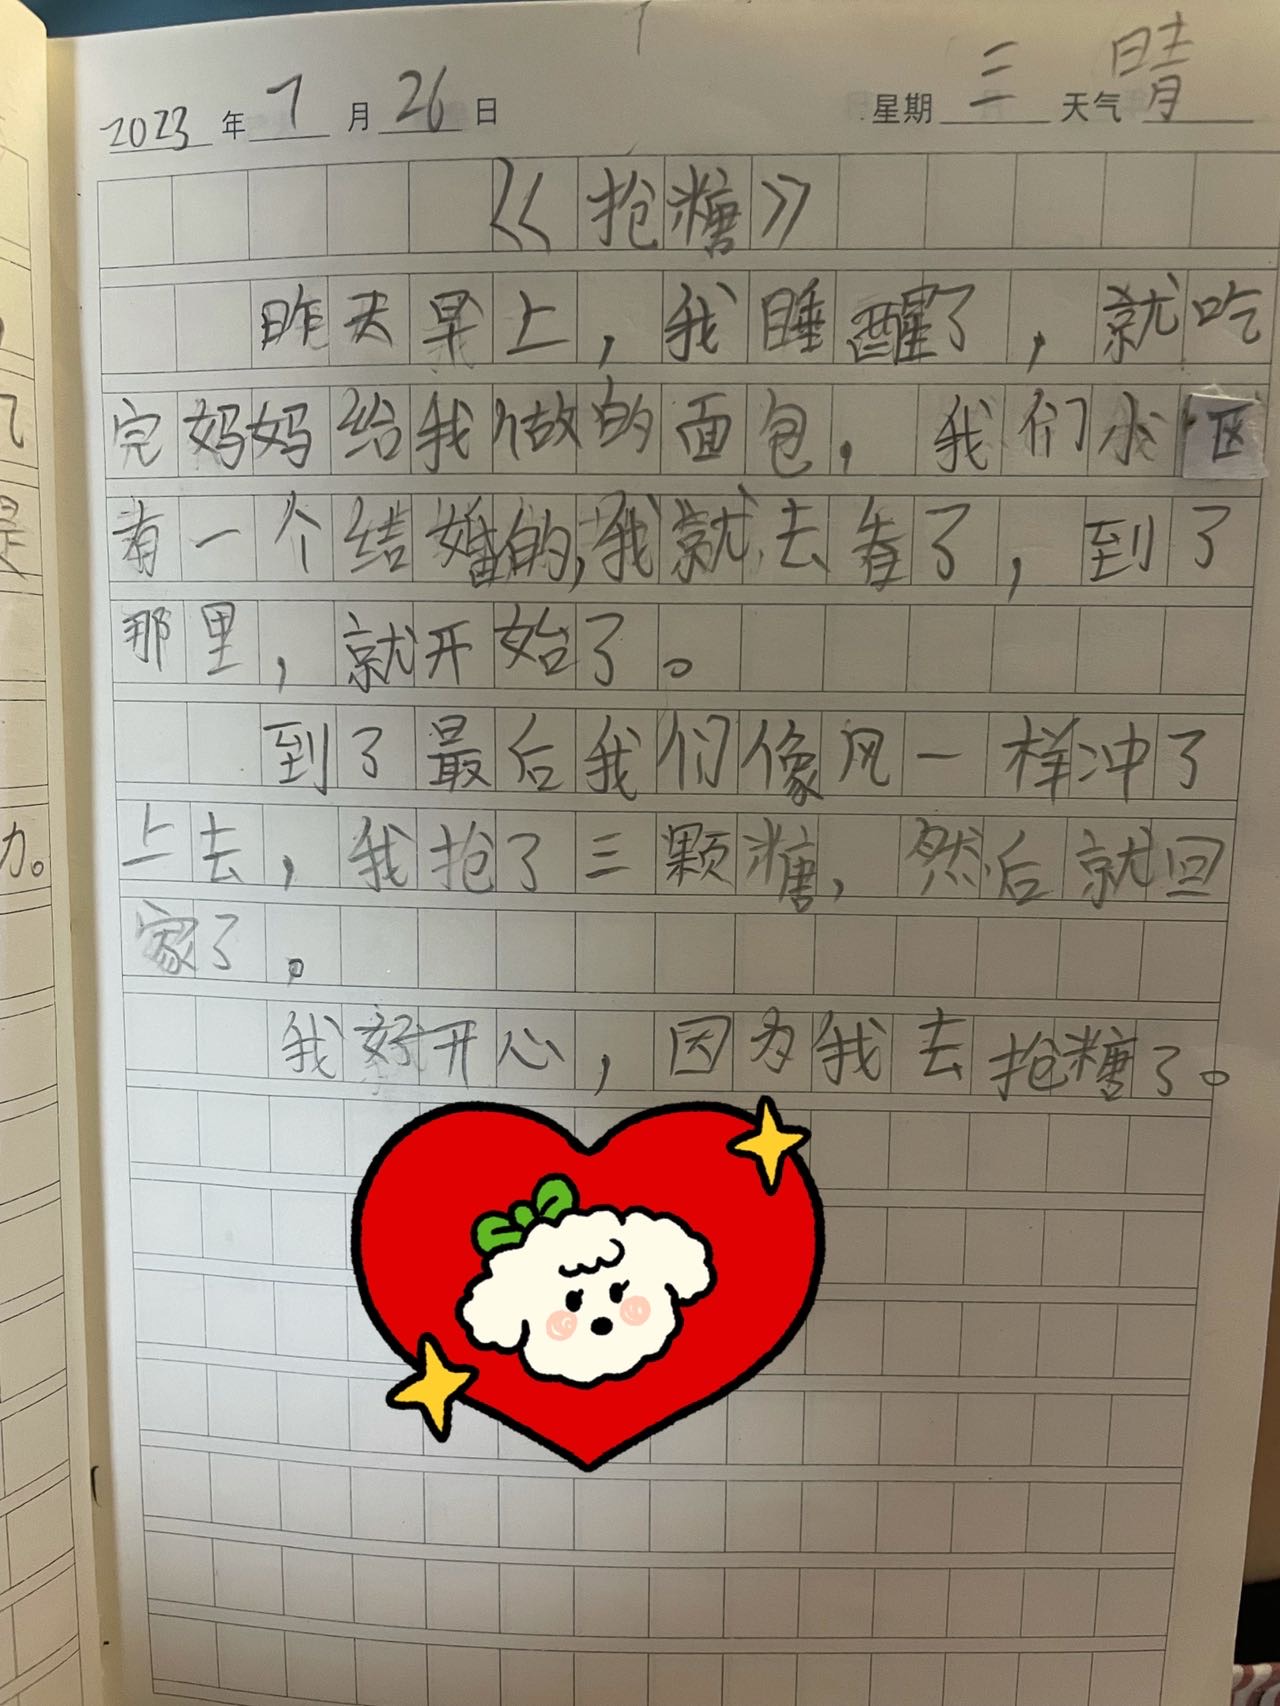 2023年7月26日 星期三 天气晴
《抢糖》
昨天早上，我睡醒了，就吃
完妈妈给我做的面包，我们小区
有一个结婚的，我就去看了，到了
那里，就开始了。
到了最后我们像风一样冲了
上去，我抢了三颗糖，然后就回
家了。
我好开心，因为我去抢糖了。